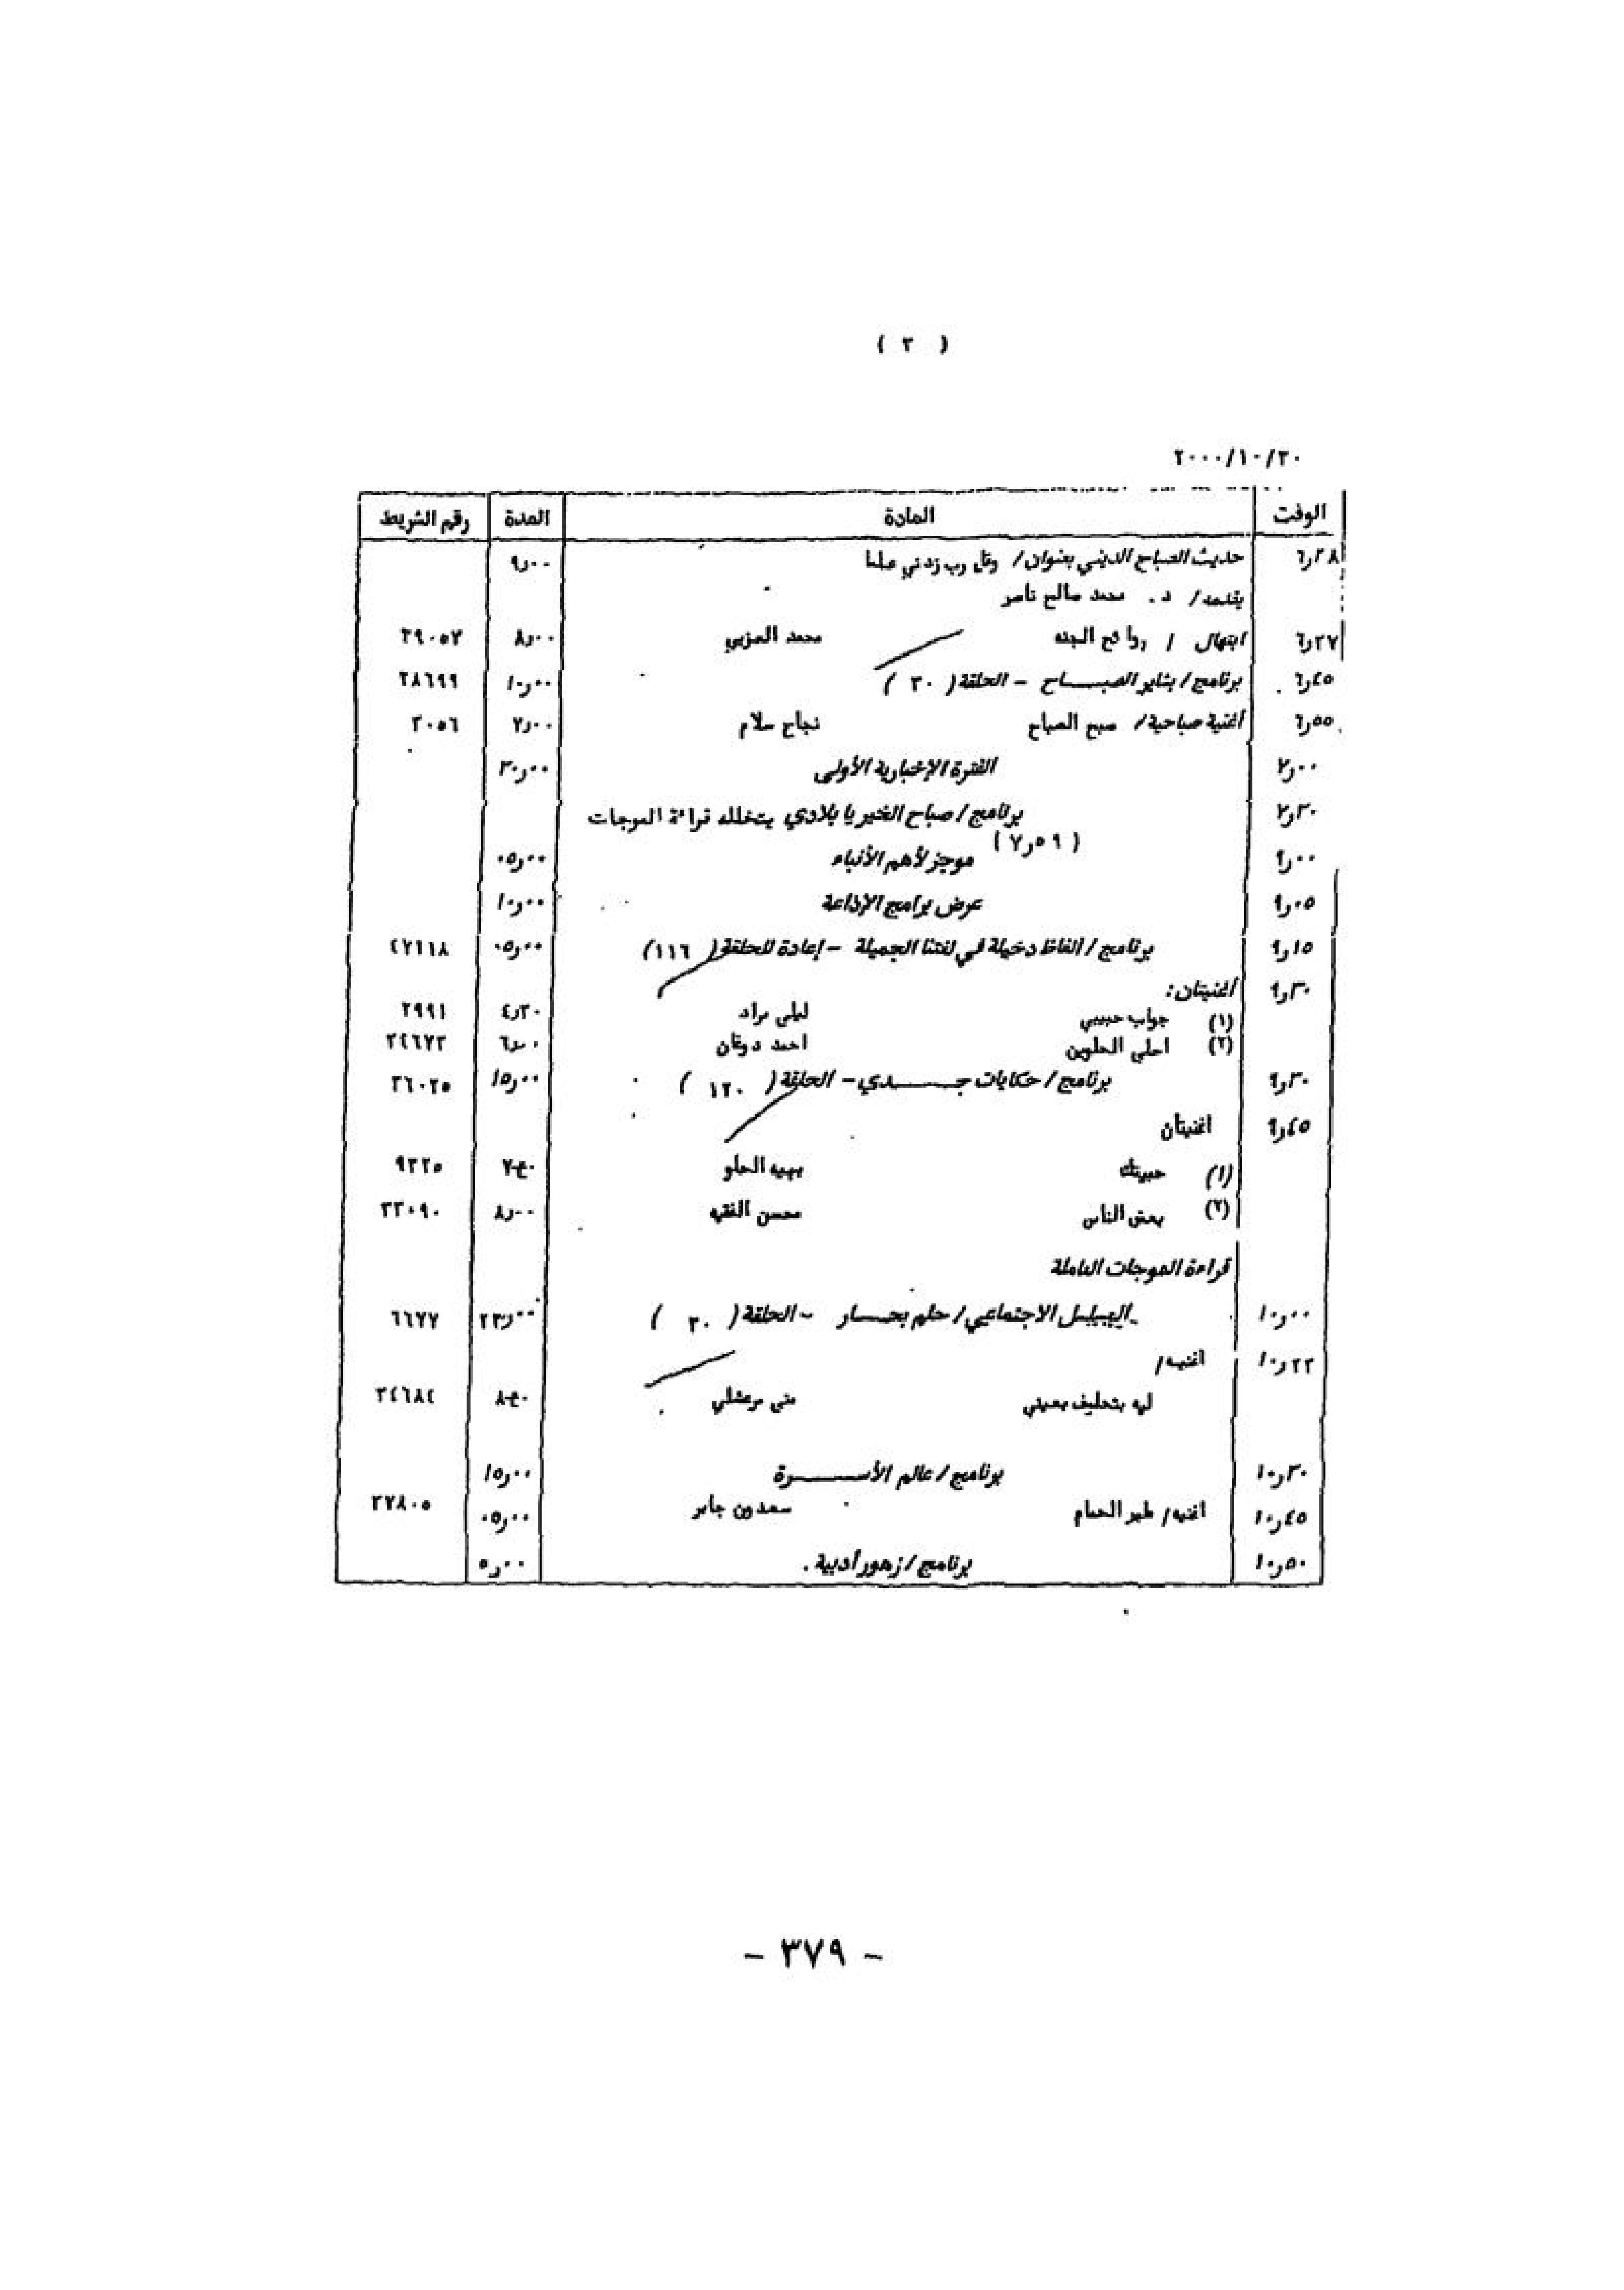 ( ٢ )
٢٠٠٠/١٠/٣٠
الوقت المادة المدة رقم الشريط
٦ر٢٨ حديث الصباح الديني بعنوان/ وقل رب زدني علما ٩ر٠٠
يقدمه/ د. محمد صالح ناصر
٦ر٣٧ ابتهال / روائح الجنه محمد العزبي ٨ر٠٠ ٣٩٠٥٧
٦ر٤٥ برنامج/ بشاير الصبــــاح - الحلقة ( ٣٠ ) ١٠ر٠٠ ٢٨٦٩٩
٦ر٥٥ أغنية صباحية/ صبح الصباح نجاح سلام ٧ر٠٠ ٢٠٥٦
٧ر٠٠ الفترة الإخبارية الأولى ٣٠ر٠٠
٧ر٣٠ برنامج/ صباح الخير يا بلادي يتخلله قراءة الموجات
( ٧ر٥٩ )
٩ر٠٠ موجز لأهم الأنباء ٠٥ر٠٠
٩ر٠٥ عرض برامج الإذاعة ١٠ر٠٠
٩ر١٥ برنامج/ ألفاظ دخيلة في لغتنا الجميلة - إعادة للحلقة ( ١١٦) ٠٥ر٠٠ ٤٧١١٨
٩ر٣٠ أغنيتان:
(١) جواب حبيبي ليلى مراد ٤ر٣٠ ٢٩٩١
(٢) احلى الحلوين احمد دوغان ٦ر٠٠ ٣٤٦٧٣
٩ر٣٠ برنامج/ حكايات جـــــدي - الحلقة ( ١٢٠ ) ١٥ر٠٠ ٣٦٠٢٥
٩ر٤٥ اغنيتان
(١) حبيتك بهيه الحلو ٩٣٢٥
(٢) بعض الناس محسن الفقيه ٨ر٠٠ ٣٣٠٩٠
قراءة الموجات العاملة
١٠ر٠٠ الاجتماعي/ حلم بحـــار - الحلقة ( ٣٠ ) ٢٣ر٠٠ ٦٦٧٧
١٠ر٢٢ اغنيه/
ليه بتحليف بعيني منى مرعشلي ٣٤٦٨٤
١٠ر٣٠ برنامج/ عالم الأســــــرة ١٥ر٠٠
١٠ر٤٥ اغنيه/ طير الحمام سعدون جابر ٠٥ر٠٠ ٢٧٨٠٥
١٠ر٥٠ برنامج/ زهور أدبية. ٥ر٠٠
- ٣٧٩ -